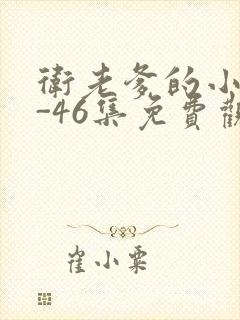 衛老爹的小
-46集免費觀
崔小粟